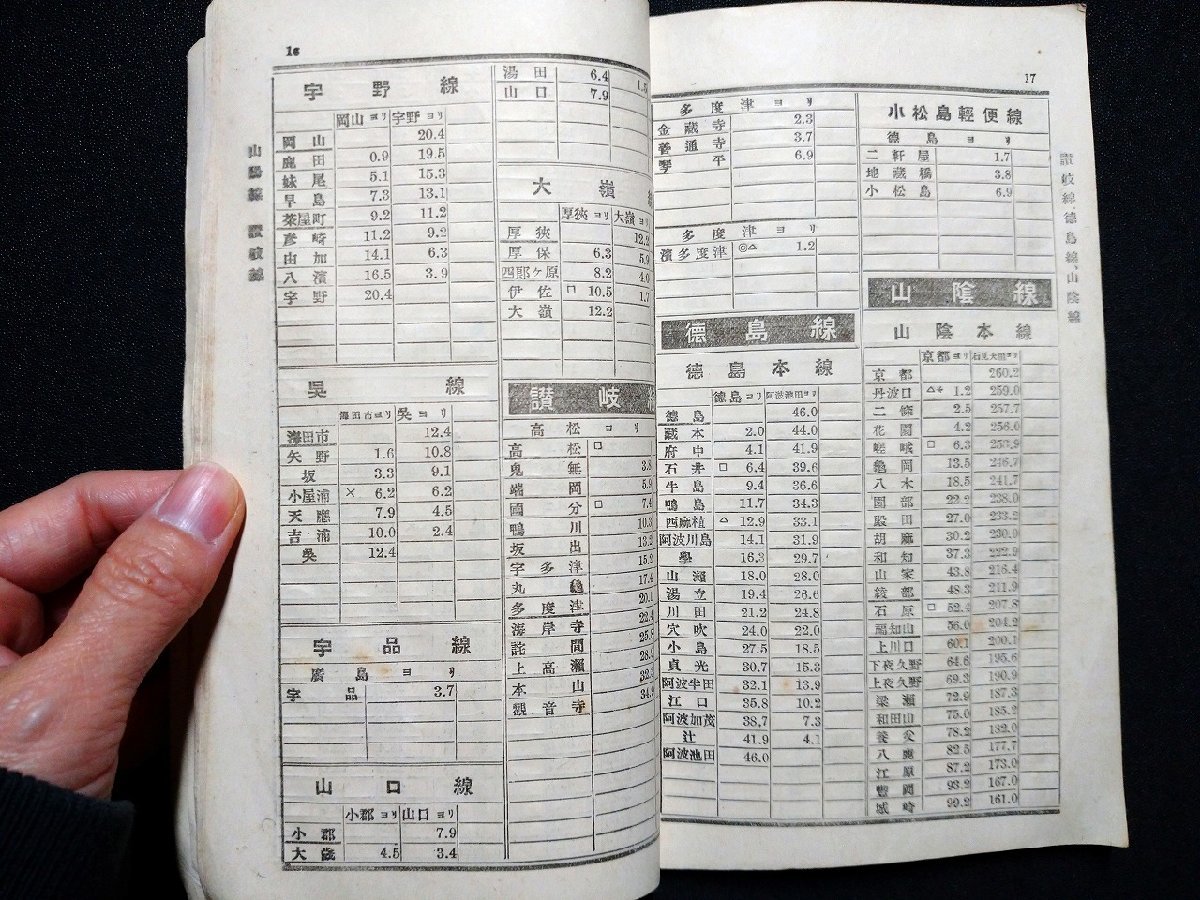 16
山陽線 讃岐線
宇野線
岡山ヨリ 宇野ヨリ
岡山 20.4
鹿田 0.9 19.5
妹尾 5.1 15.3
早島 7.3 13.1
茶屋町 9.2 11.2
彦崎 11.2 9.2
由加 14.1 6.3
八濱 16.5 3.9
宇野 20.4
呉線
海田市ヨリ 呉ヨリ
海田市 12.4
矢野 1.6 10.8
坂 3.3 9.1
小屋浦 × 6.2 6.2
天應 7.9 4.5
吉浦 10.0 2.4
呉 12.4
宇品線
廣島ヨリ
宇品 3.7
山口線
小郡ヨリ 山口ヨリ
小郡 7.9
大歳 4.5 3.4
湯田 6.4
山口 7.9
大嶺
厚狭ヨリ 大嶺ヨリ
厚狭 12.2
厚保 6.3 5.9
四郎ヶ原 8.2 4.0
伊佐 □ 10.5 1.7
大嶺 12.2
讃岐
高松ヨリ
高松 □
鬼無 3.8
端岡 5.9
國分 □ 7.4
鴨川 10.3
坂出 13.2
宇多津 15.2
丸亀 17.4
多度津 20.1
海岸寺 22.4
詫間 25.8
上高瀬
本山
観音寺
17
讃岐線、徳島線、山陰線
多度津ヨリ
金蔵寺 2.3
善通寺 3.7
琴平 6.9
多度津ヨリ
濱多度津 ◎△ 1.2
徳島線
徳島本線
徳島ヨリ 阿波池田ヨリ
徳島 46.0
蔵本 2.0 44.0
府中 4.1 41.9
石井 □ 6.4 39.6
牛島 9.4 36.6
鴨島 11.7 34.3
西麻植 △ 12.9 33.1
阿波川島 14.1 31.9
學 16.3 29.7
山瀬 18.0 28.0
湯立 19.4 26.6
川田 21.2 24.8
穴吹 24.0 22.0
小島 27.5 18.5
貞光 30.7 15.3
阿波半田 32.1 13.9
江口 35.8 10.2
阿波加茂 38.7 7.3
辻 41.9 4.1
阿波池田 46.0
小松島輕便線
徳島ヨリ
二軒屋 1.7
地蔵橋 3.8
小松島 6.9
山陰線
山陰本線
京都ヨリ 石見大田ヨリ
京都 260.2
丹波口 1.2 259.0
二條 2.5 257.7
花園 4.2 256.0
嵯峨 □ 6.3 253.9
龜岡 13.5 246.7
八木 18.5 241.7
園部 22.2 238.0
殿田 27.0 233.2
胡麻 30.2 230.0
和知 37.3 222.9
山家 43.8 216.4
綾部 48.3 211.9
石原 □ 52.4 207.8
福知山 56.0 204.2
上川口 60.1 200.1
下夜久野 64.6 195.6
上夜久野 69.3 190.9
梁瀬 72.9 187.3
和田山 75.0 185.2
養父 78.2 182.0
八鹿 82.5 177.7
江原 87.2 173.0
豐岡 93.2 167.0
城崎 99.2 161.0